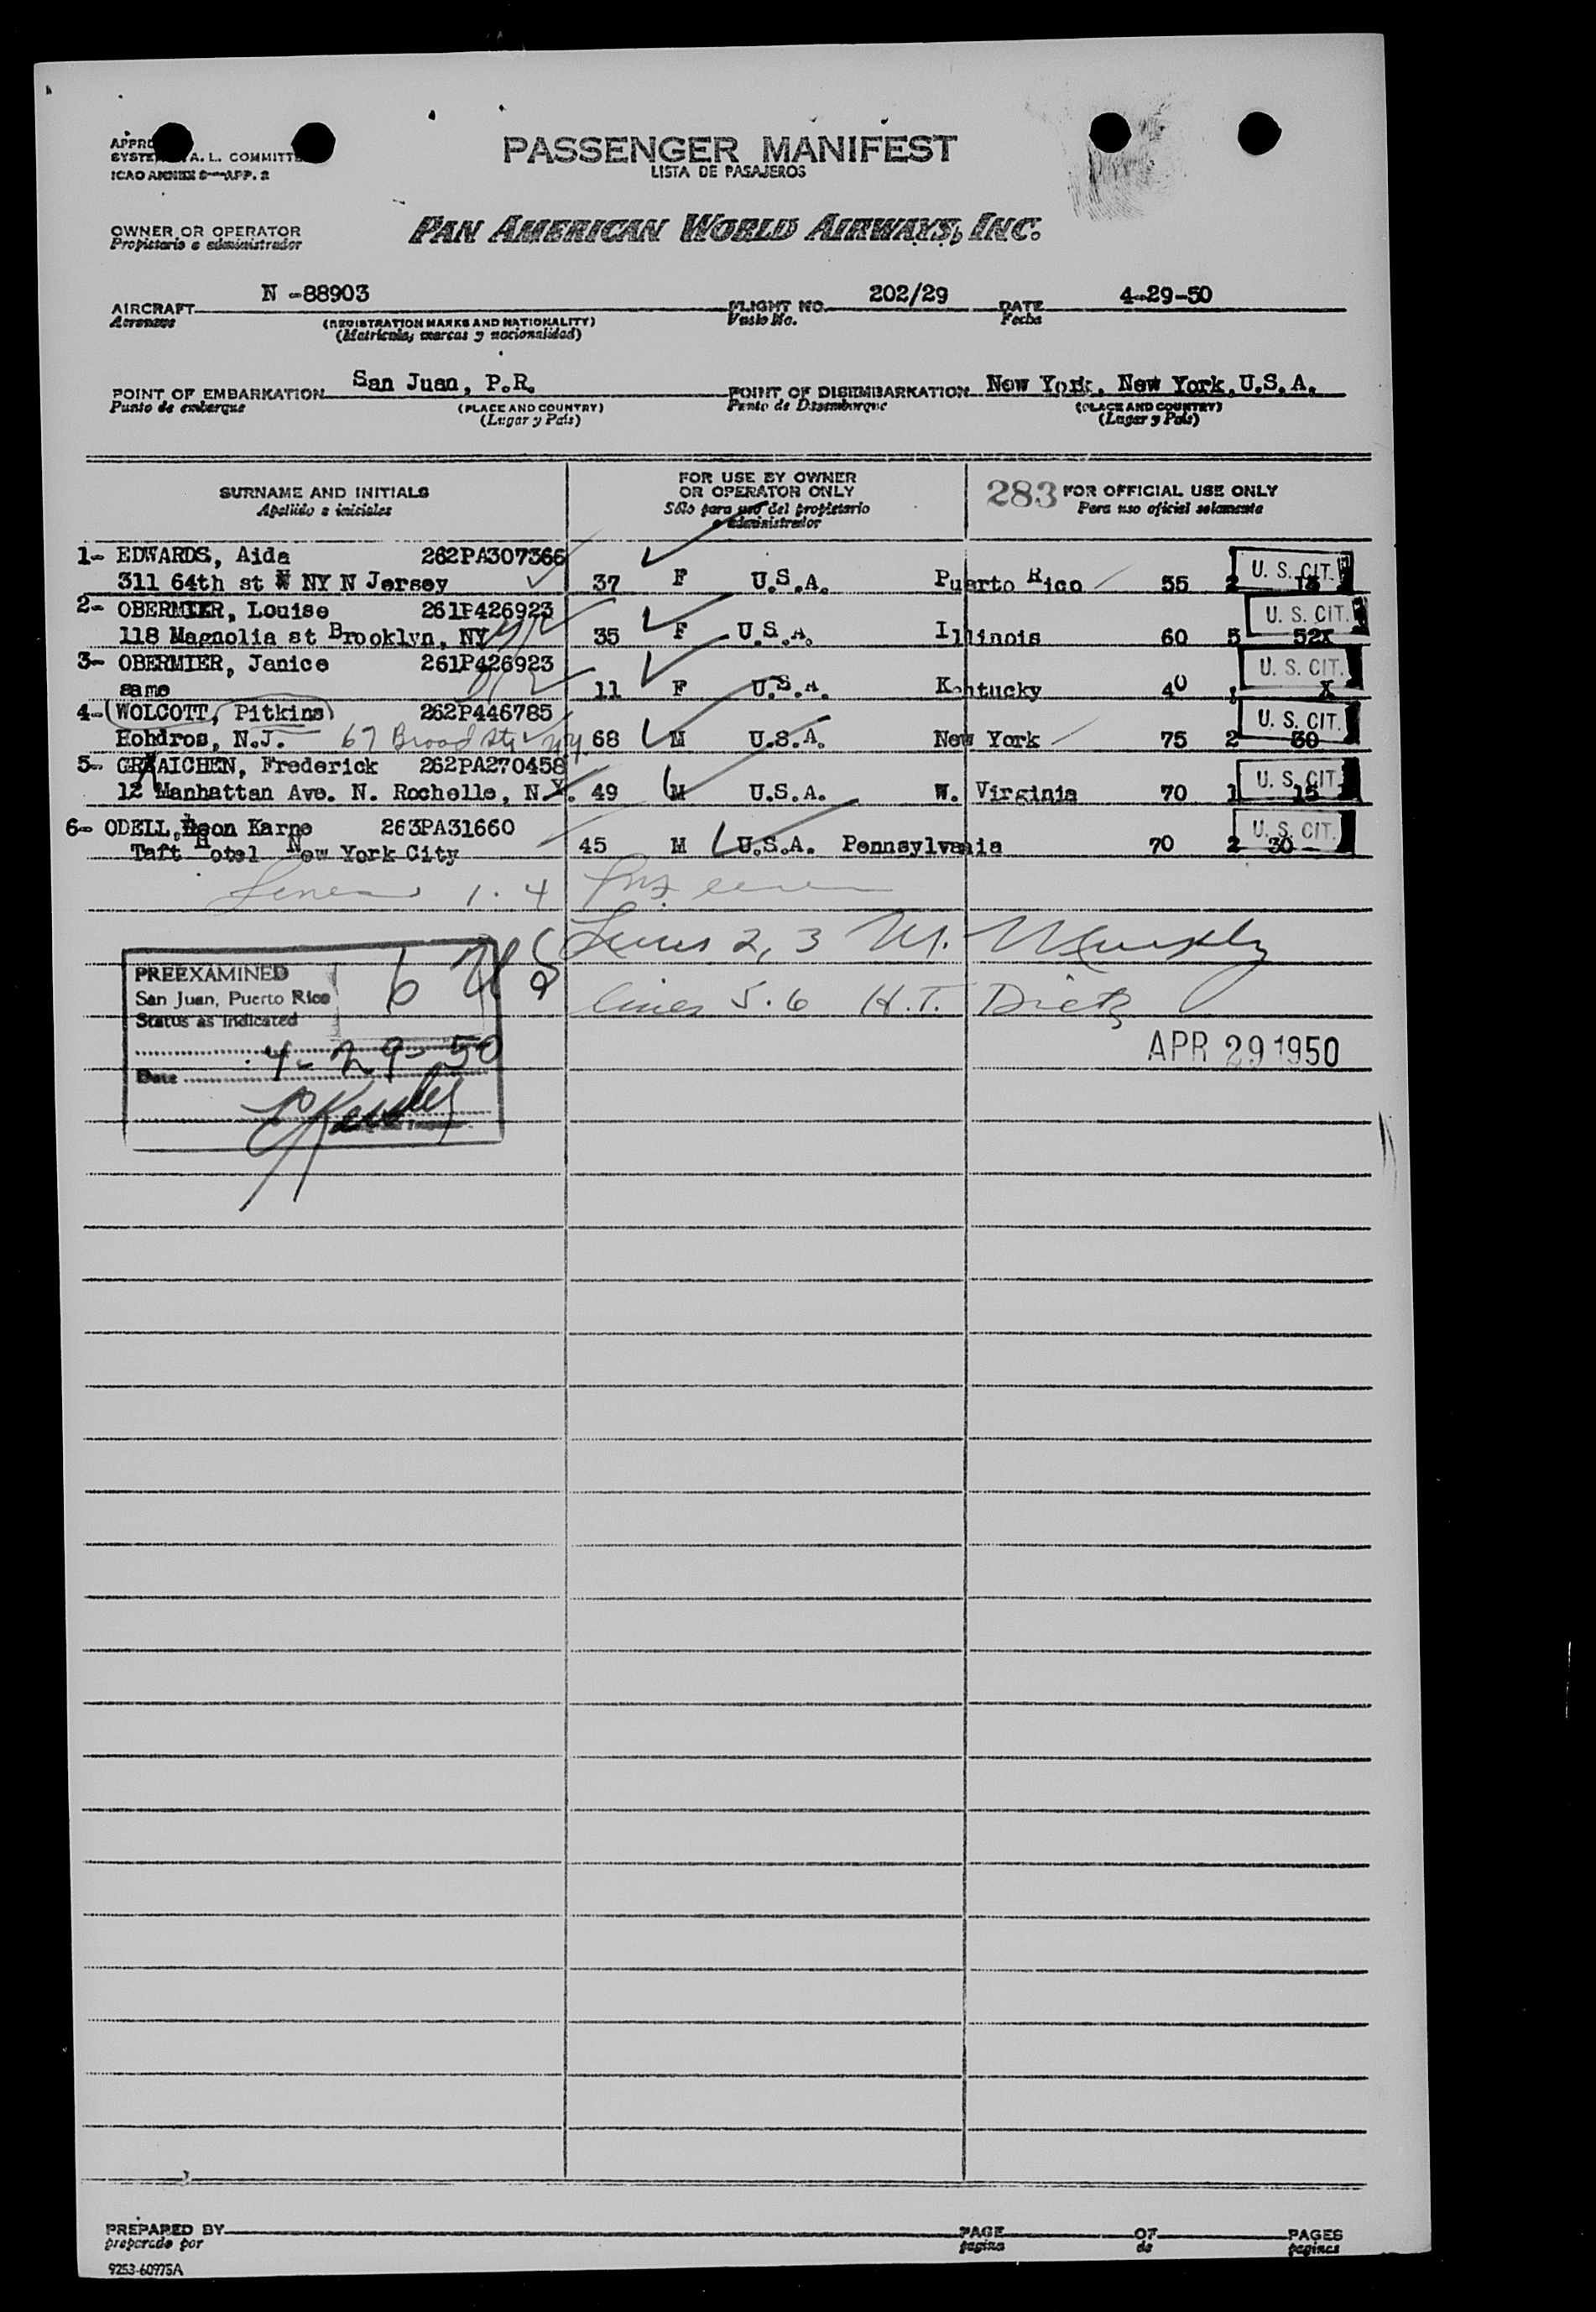 PASSENGER MANIFEST
LISTA DE PASAJEROS
APPRO
SYSTE A. L. COMMITTE
ICAO ANNEX 9—APP. 2
OWNER OR OPERATOR
Propietario o administrador
PAN AMERICAN WORLD AIRWAYS, INC.
AIRCRAFT N -88903 FLIGHT NO. 202/29 DATE 4-29-50
Aeronave (REGISTRATION MARKS AND NATIONALITY) Vuelo No. Fecha
(Matrícula, marcas y nacionalidad)
POINT OF EMBARKATION San Juan, P.R. POINT OF DISEMBARKATION New York, New York, U.S.A.
Punto de embarque (PLACE AND COUNTRY) Punto de Desembarque (PLACE AND COUNTRY)
(Lugar y País) (Lugar y País)
SURNAME AND INITIALS FOR USE BY OWNER OR OPERATOR ONLY 283 FOR OFFICIAL USE ONLY
Apellido e iniciales Sólo para uso del propietario o administrador Para uso oficial solamente
1- EDWARDS, Aida 262PA307366
311 64th st W NY N Jersey 37 F U.S.A. Puerto Rico 55 2 U. S. CIT.
2- OBERMIER, Louise 261P426923
118 Magnolia st Brooklyn, NY 35 F U.S.A. Illinois 60 5 52X U. S. CIT.
3- OBERMIER, Janice 261P426923
same 11 F U.S.A. Kentucky 40 X U. S. CIT.
4- WOLCOTT, Pitkins 262P446785
Hohdros, N.J. 67 Broad St NY 68 M U.S.A. New York 75 2 30 U. S. CIT.
5- GRAICHEN, Frederick 262PA270458
12 Manhattan Ave. N. Rochelle, N.Y. 49 M U.S.A. W. Virginia 70 1 15 U. S. CIT.
6- ODELL, Leon Karne 263PA31660
Taft Hotel New York City 45 M U.S.A. Pennsylvania 70 2 30 U. S. CIT.
Lines 1. 4
Lines 2, 3 M. Murphy
lines 5. 6 H.T. Dietz
PREEXAMINED 6 USC
San Juan, Puerto Rico
Status as Indicated
Date 4-29-50
APR 29 1950
PREPARED BY PAGE OF PAGES
preparado por pagina de paginas
9253-60975A